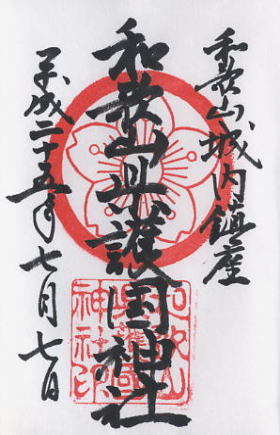 和歌山城内鎮座
和歌山県護国神社
平成二十五年七月七日
和歌山
県護国
神社印